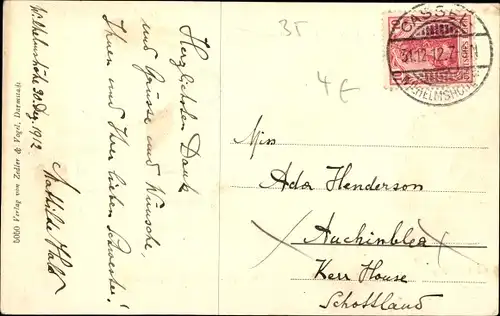 35
4€
CASSEL
31.12.12.7
WILHELMSHÖHE
Herzlichsten Dank
und Grüsse und Wünsche,
Ihnen und Ihrer lieben Schwester!
Mathilde
Wilhelmshöhe 30. Dez. 1912
Verlag von Zedler & Vogel, Darmstadt
Miss
Ada Henderson
Auchinblea
Kerr House
Schottland